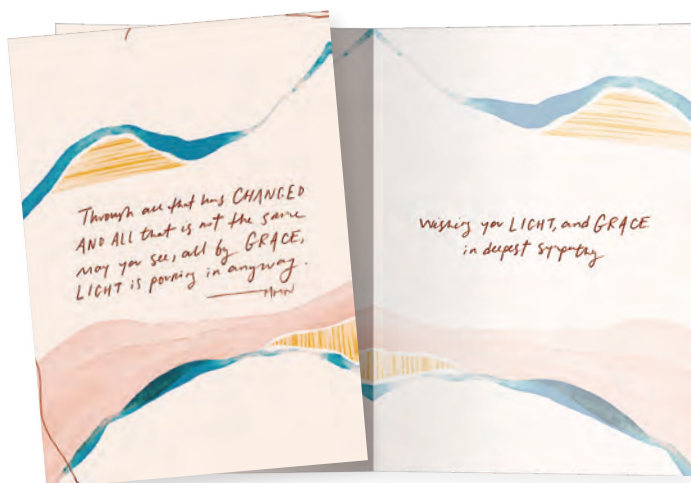 Through all that has CHANGED
AND ALL that is not the same
may you see, all by GRACE,
LIGHT is pouring in anyway.
MHN
wishing you LIGHT, and GRACE
in deepest sympathy